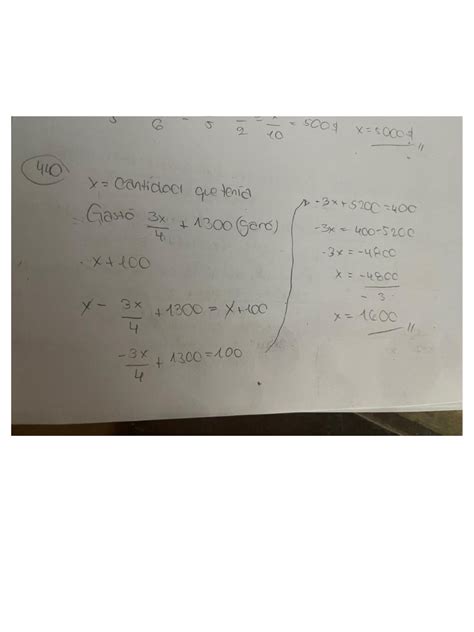 6 5 2 10 = 500$ x=5000$
440
x = Cantidad que tenia
Gastó 3x/4 + 1300 (Ganó)
x+100
x - 3x/4 + 1300 = x+100
-3x/4 + 1300 = 100
-3x+5200=400
-3x = 400-5200
-3x = -4800
x = -4800/-3
x = 1600